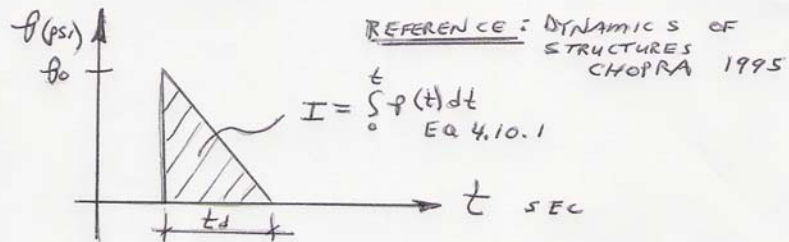 p(psi)
p₀
REFERENCE: DYNAMICS OF
STRUCTURES
CHOPRA 1995
I = ∫₀ᵗ p(t)dt
EQ 4.10.1
t SEC
td